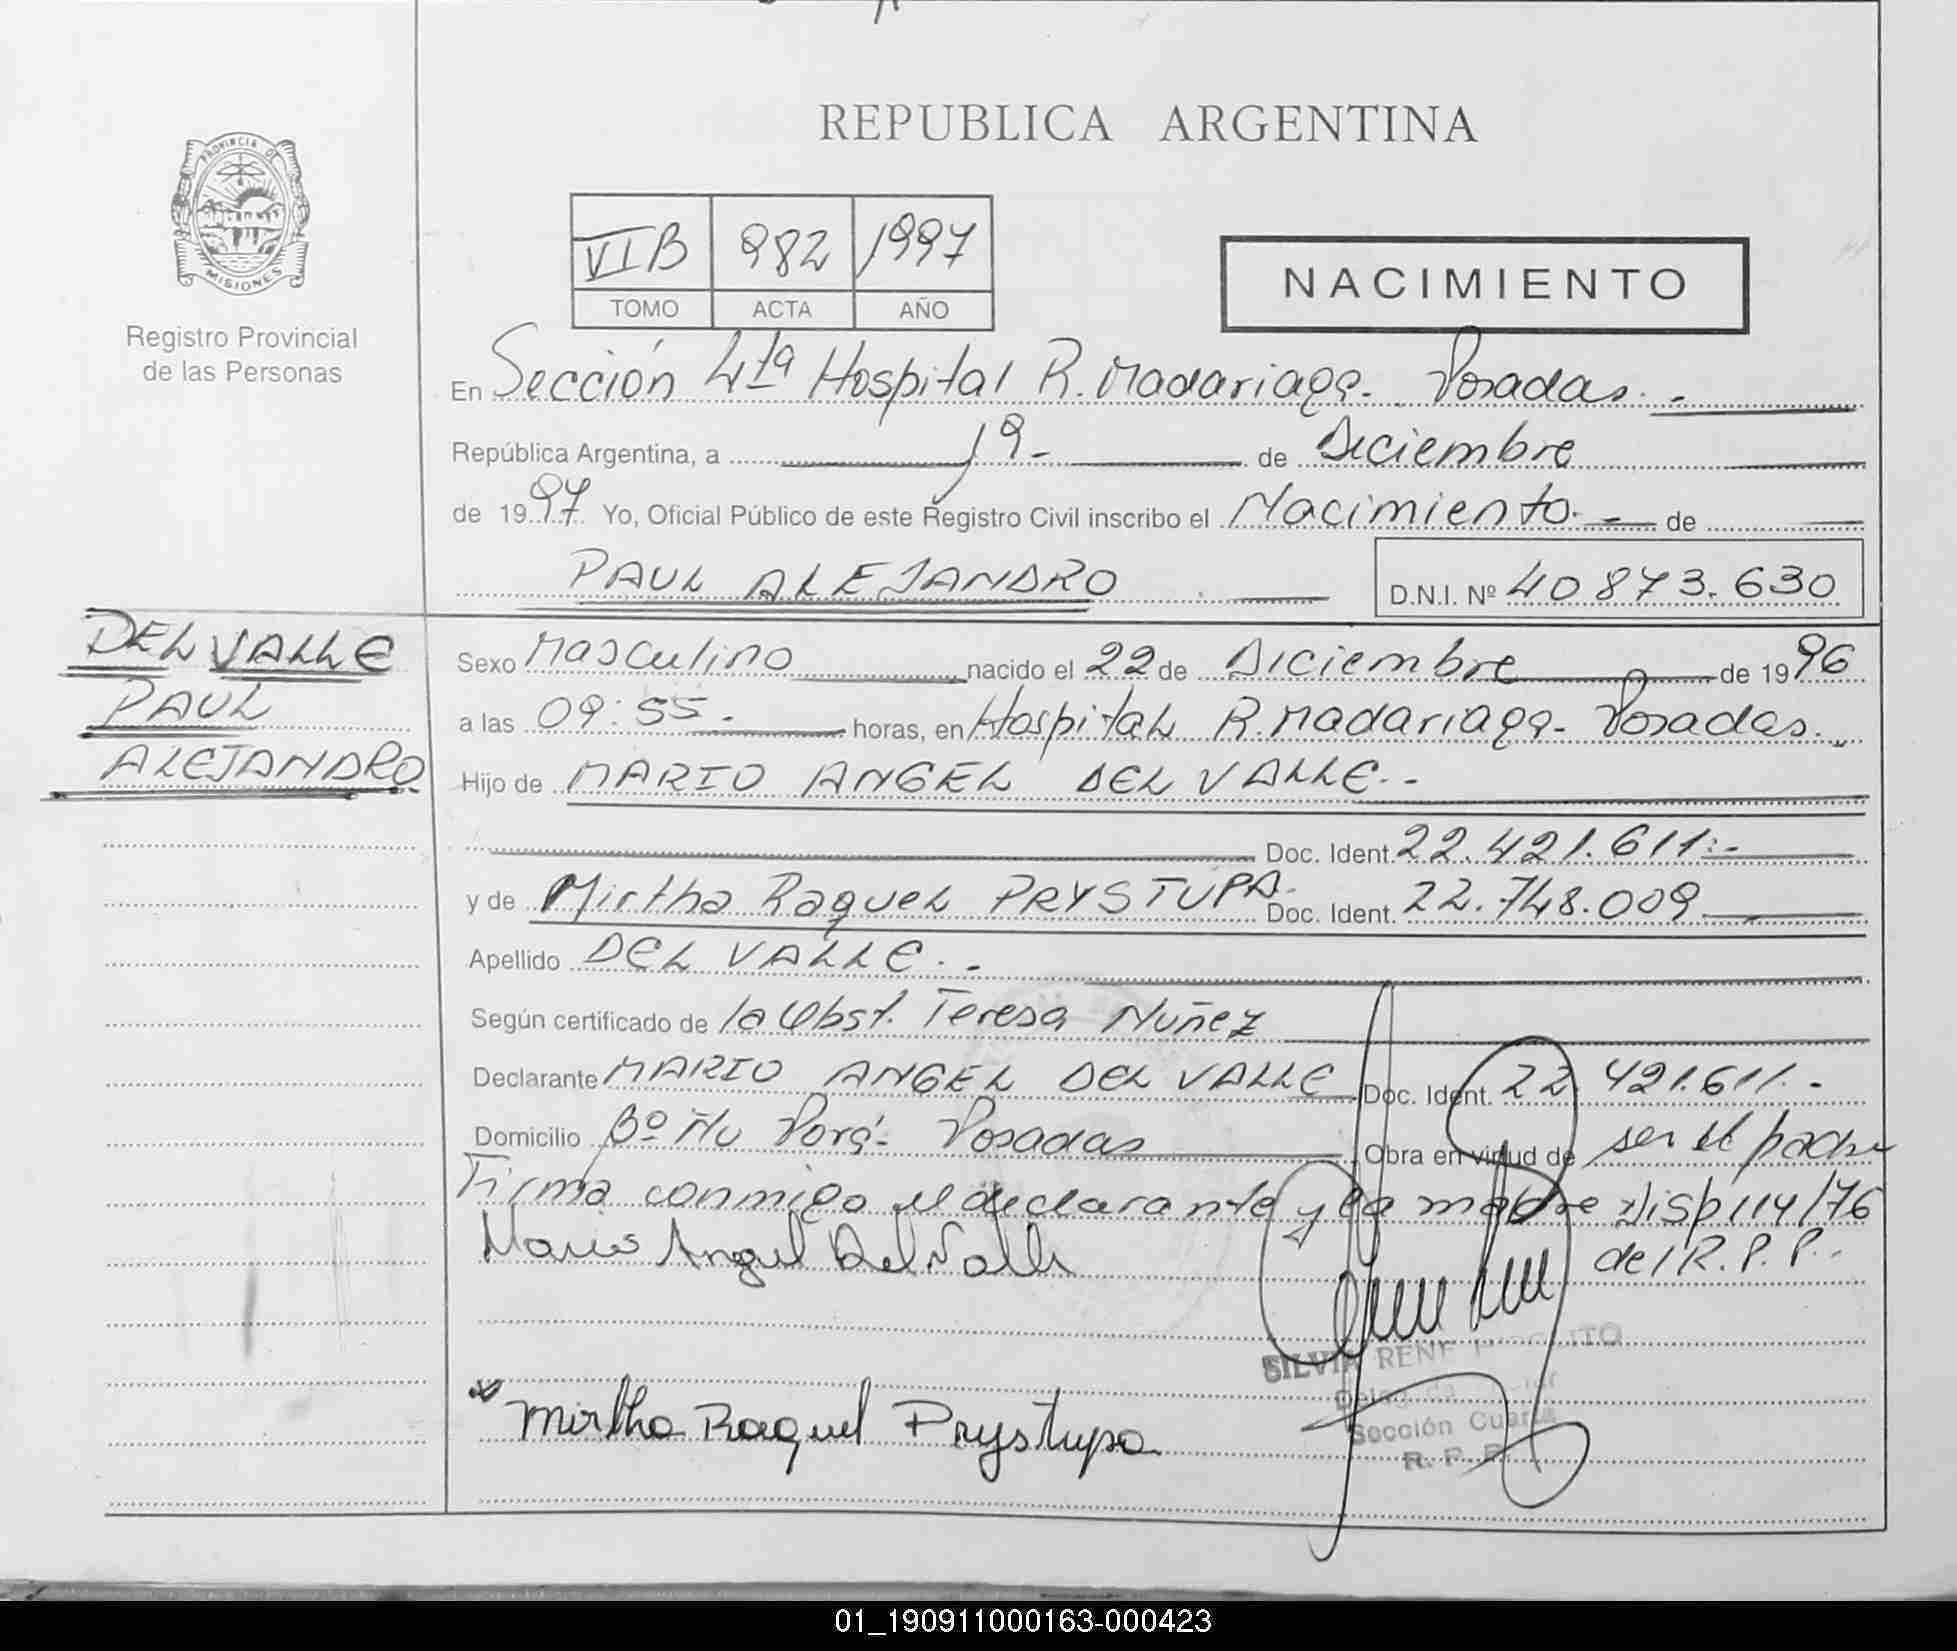 REPUBLICA ARGENTINA
PROVINCIA DE
MISIONES
Registro Provincial
de las Personas
VI B 982 1997
TOMO ACTA AÑO
NACIMIENTO
En Sección 4ta Hospital R. Madariaga - Posadas. -
República Argentina, a 19 - de Diciembre
de 1997 Yo, Oficial Público de este Registro Civil inscribo el Nacimiento. - de
PAUL ALEJANDRO D.N.I. Nº 40873.630
DEL VALLE
PAUL
ALEJANDRO
Sexo Masculino nacido el 22 de Diciembre de 1996
a las 09:55. horas, en Hospital R. Madariaga - Posadas.
Hijo de MARIO ANGEL DEL VALLE. -
Doc. Ident. 22.421.611: -
y de Mirtha Raquel PRYSTUPA. Doc. Ident. 22.748.009
Apellido DEL VALLE. -
Según certificado de la Obst. Teresa Nuñez
Declarante MARIO ANGEL DEL VALLE Doc. Ident. 22 421.611. -
Domicilio Bº Ñu Porá - Posadas Obra en virtud de ser el padre
Firma conmigo el declarante y la madre Disp 114/76
del R. P. P.
Mario Angel Del Valle
SILVIA RENE
Mirtha Raquel Prystupa
Sección Cuarta
R. P. P.
01_190911000163-000423